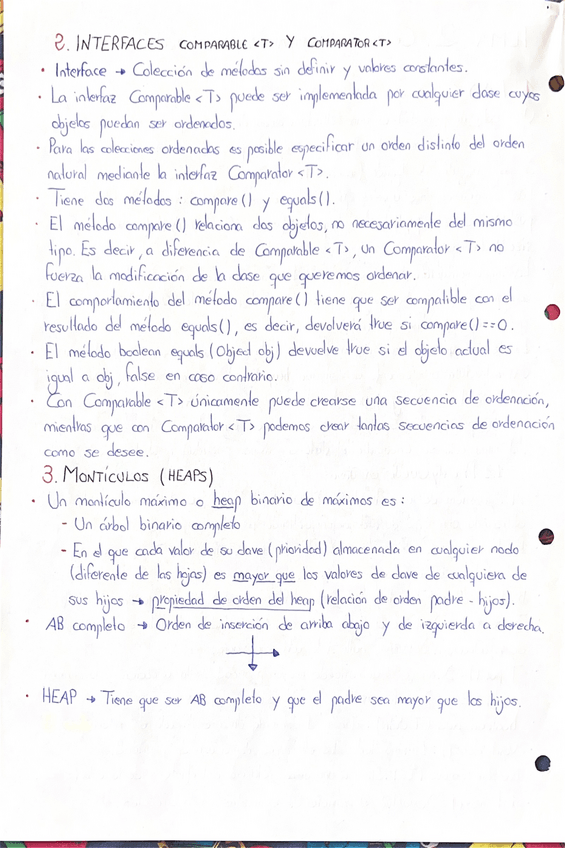 2. INTERFACES COMPARABLE <T> Y COMPARATOR <T>
• Interface → Colección de métodos sin definir y valores constantes.
• La interfaz Comparable <T> puede ser implementada por cualquier clase cuyos
objetos puedan ser ordenados.
• Para las colecciones ordenadas es posible especificar un orden distinto del orden
natural mediante la interfaz Comparator <T>.
• Tiene dos métodos : compare () y equals ().
• El método compare () relaciona dos objetos, no necesariamente del mismo
tipo. Es decir, a diferencia de Comparable <T>, un Comparator <T> no
fuerza la modificación de la clase que queremos ordenar.
• El comportamiento del método compare () tiene que ser compatible con el
resultado del método equals (), es decir, devolverá true si compare () == 0.
• El método boolean equals (Object obj) devuelve true si el objeto actual es
igual a obj, false en caso contrario.
• Con Comparable <T> únicamente puede crearse una secuencia de ordenación,
mientras que con Comparator <T> podemos crear tantas secuencias de ordenación
como se desee.
3. MONTÍCULOS (HEAPS)
• Un montículo máximo o heap binario de máximos es :
- Un árbol binario completo
- En el que cada valor de su clave (prioridad) almacenada en cualquier nodo
(diferente de las hojas) es mayor que los valores de clave de cualquiera de
sus hijos → propiedad de orden del heap (relación de orden padre - hijos).
• AB completo → Orden de inserción de arriba abajo y de izquierda a derecha.
• HEAP → Tiene que ser AB completo y que el padre sea mayor que los hijos.